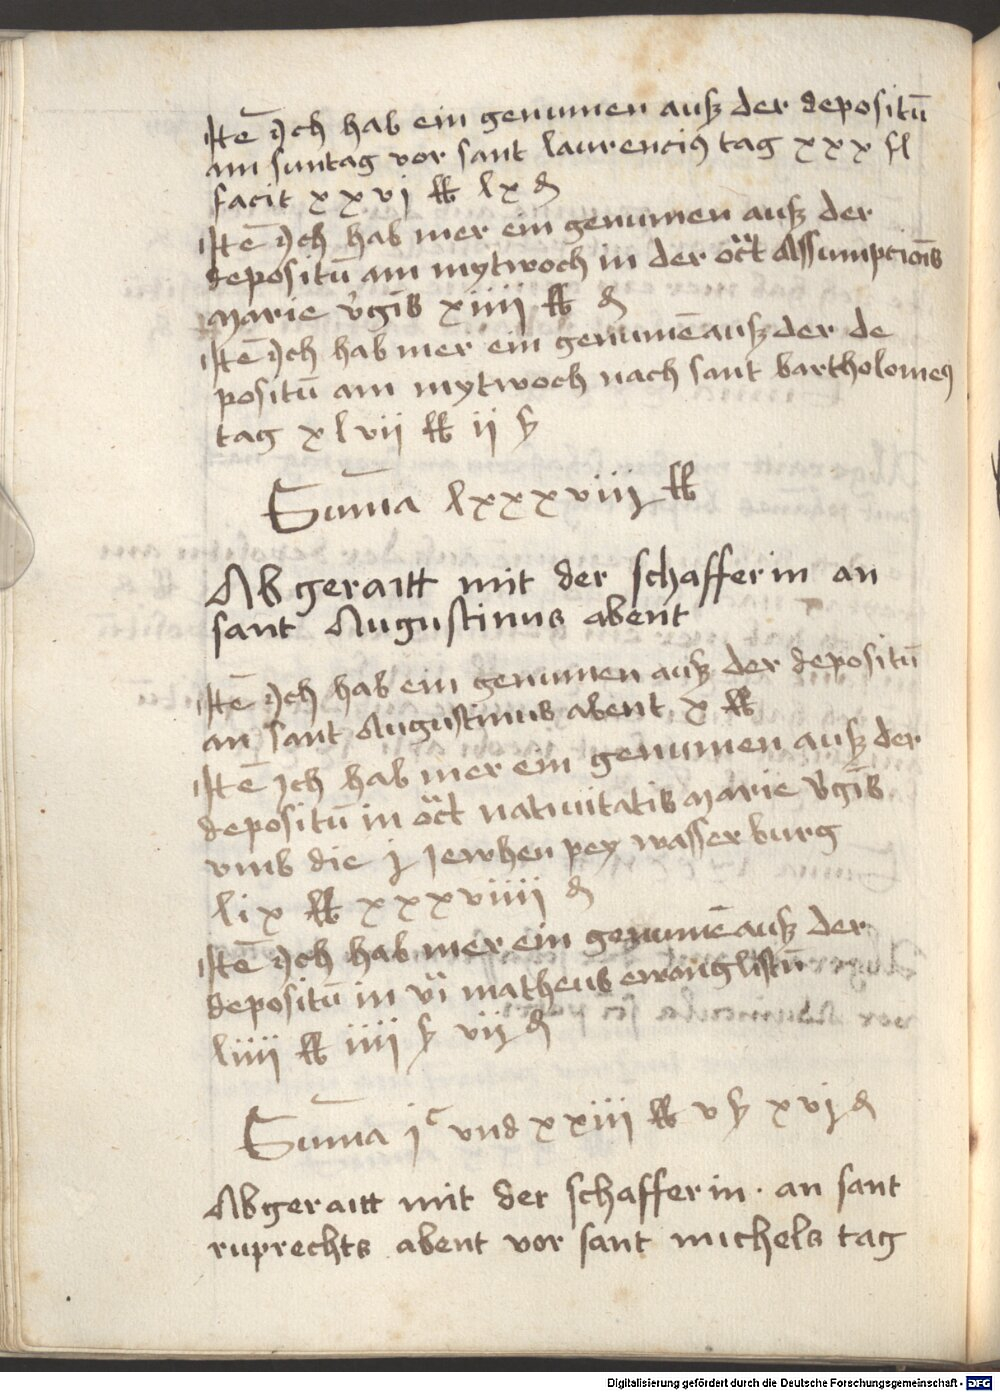 Itē Ich hab ein genumen auß der depositū
am suntag vor sant laurenciꝰ tag xxx fl
facit xxvi ℔ lx ₰
Itē Ich hab mer ein genumen auß der
depositū am mytwoch in der oct Assumpcionis
Marie v̓gīs xiiii ℔ ₰
Itē Ich hab mer ein genumē auß der de
positū am mytwoch nach sant bartholomeꝰ
tag xlvii ℔ ii ß
Sum̄a lxxxviij ℔
Abgeraitt mit der schafferin an
sant Augustinus abent
Itē Ich hab ein genumen auß der depositū
an sant Augustinus abent x ℔
Itē Ich hab mer ein genumen auß der
depositū in oct natiuitatis Marie v̓gīs
vmb die j pey wasserburg
lix ℔ xxxviiii ₰
Itē Ich hab mer ein genumē auß der
depositū in matheus ewanglistū
liiii ℔ iiii ß vij ₰
Sum̄a jᶜ vnd xxiii ℔ v ß xvj ₰
Abgeraitt mit der schafferin · an sant
ruprechts abent vor sant michels tag
Digitalisierung gefördert durch die Deutsche Forschungsgemeinschaft - DFG